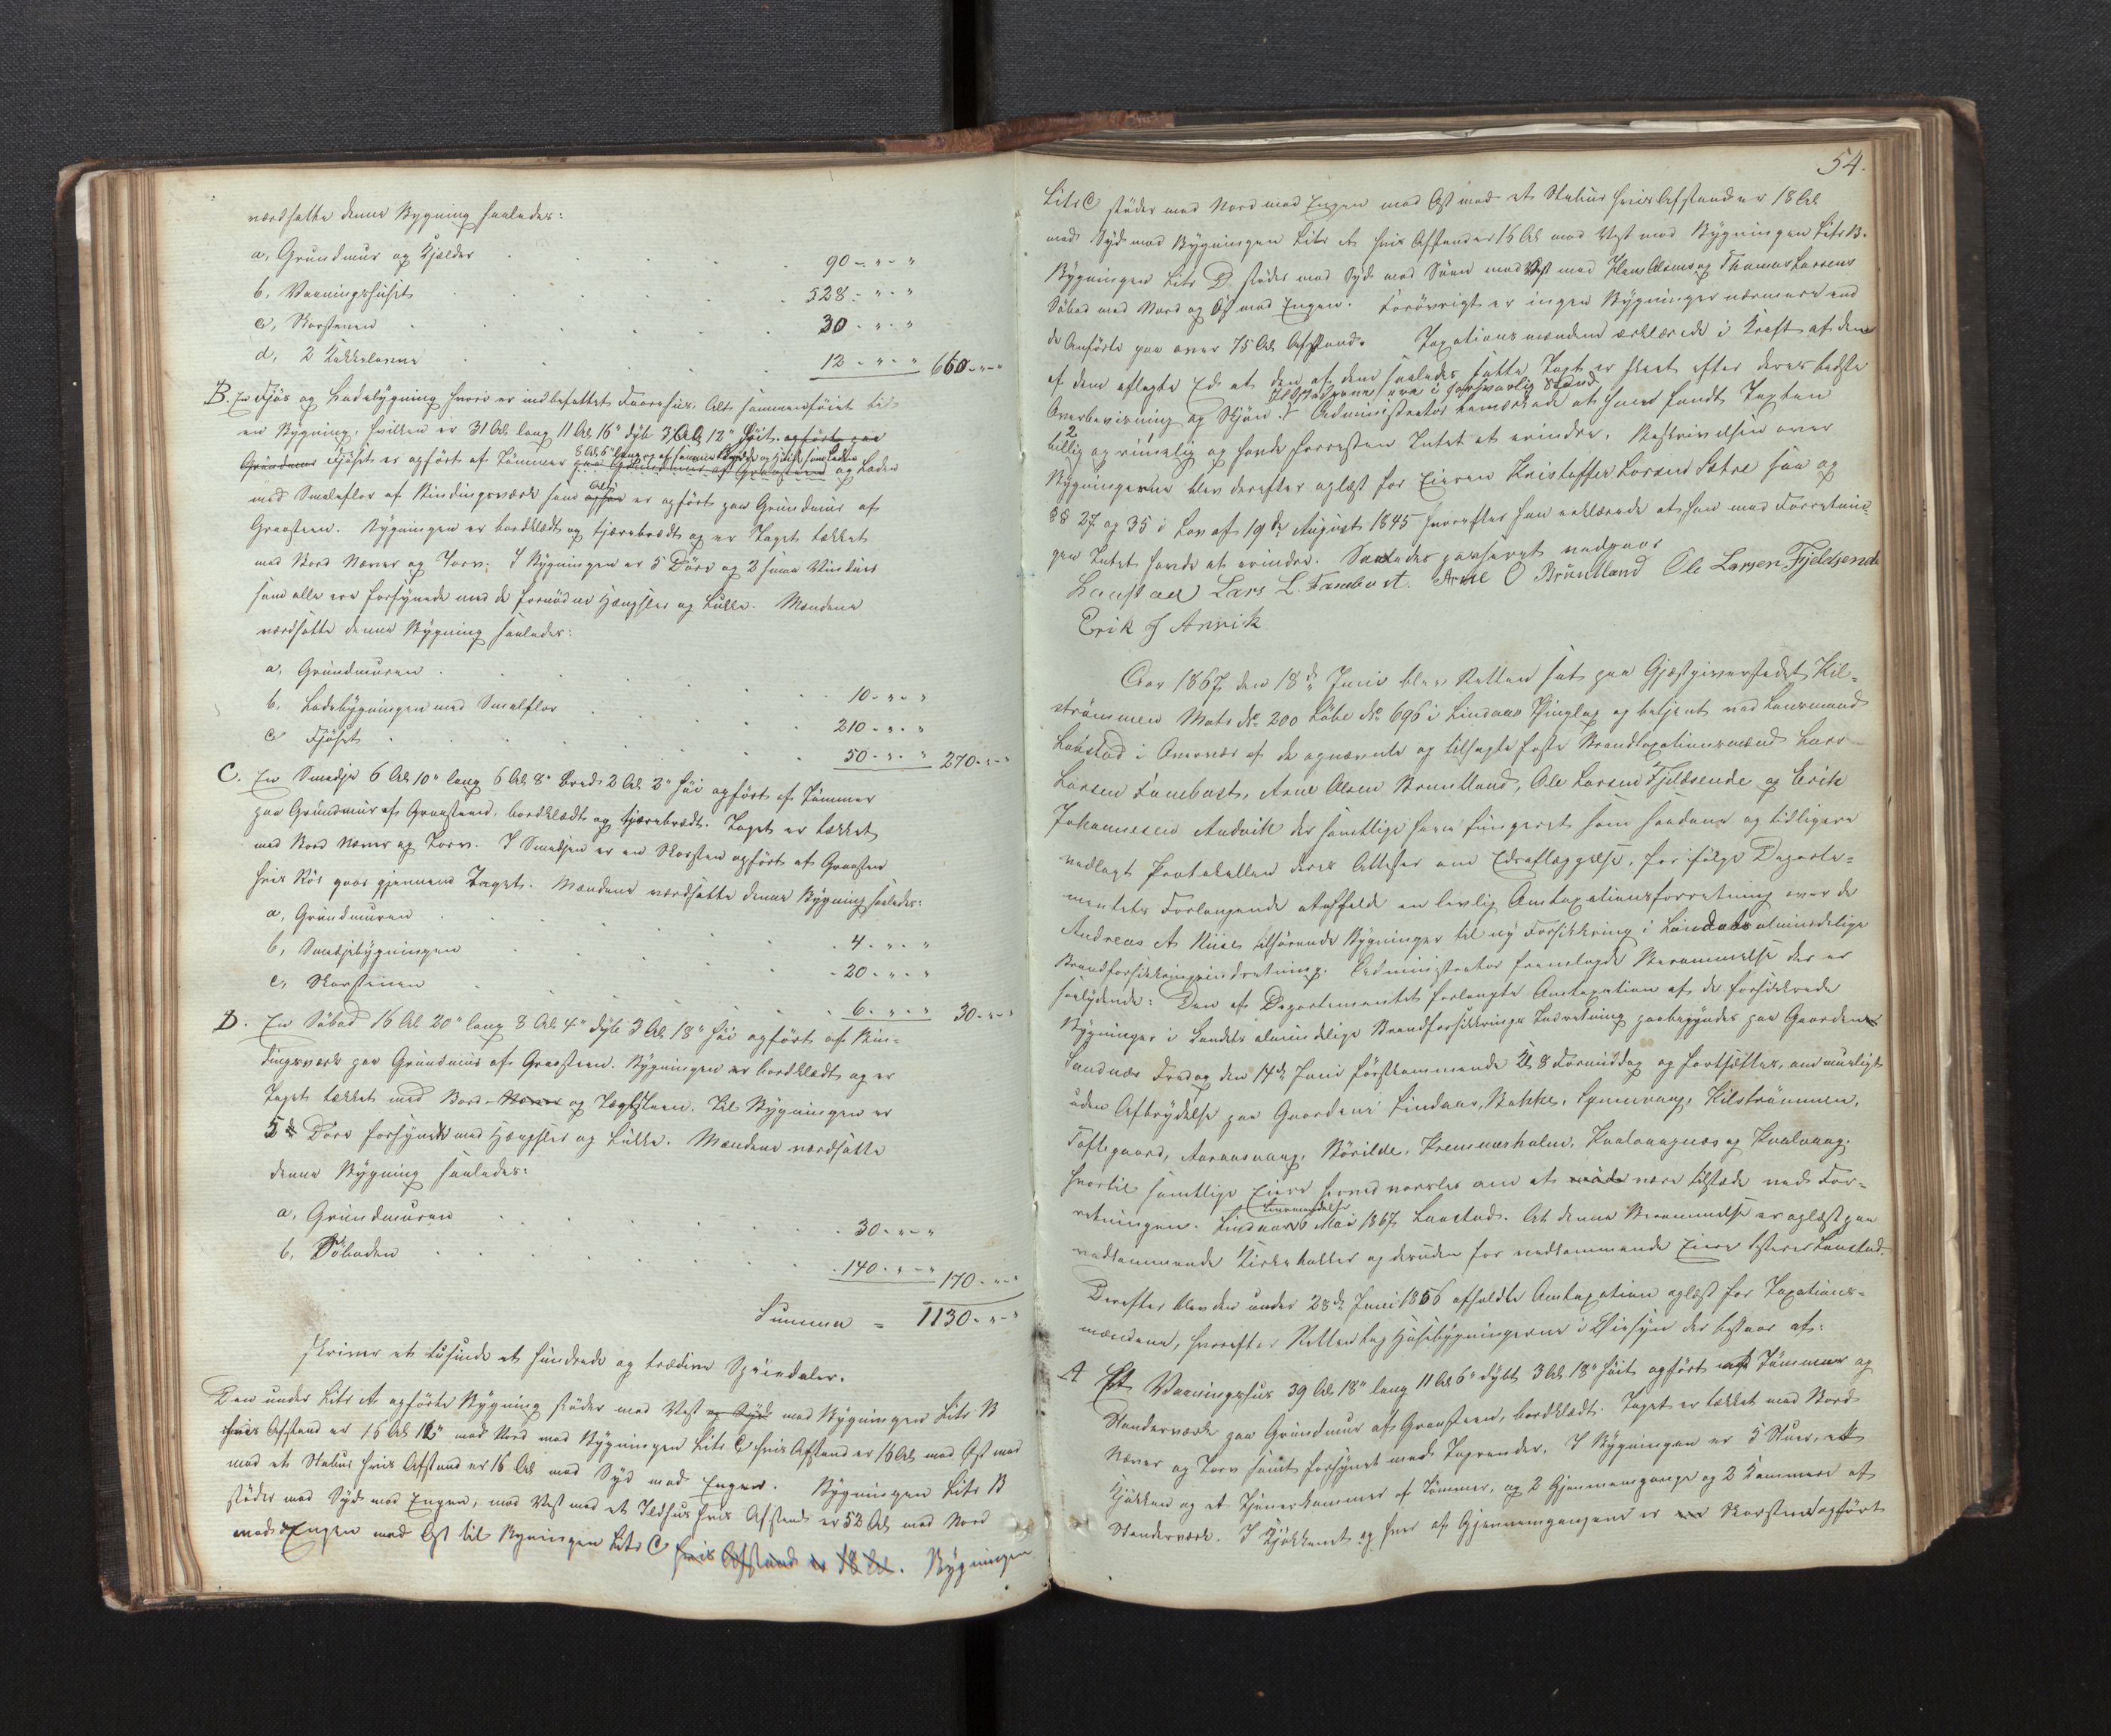 værdsatte denne Bygning saaledes:
a, Grundmur og Kjelder 90 - " - "
b, Vaaningshuset 528 - " - "
c, Skorstenen 30 - " - "
d, 2 Kakkelovne 12 - " - " 660 - " - "
B. En Fjøs og Ladebygning hvori er indbefattet Faarehuus, Alt sammenføiet til
en Bygning, hvilken er 31 Al. lang 11 Al. 16" dyb 3 Al. 12" høit. opført paa
Grundmur Fjøset er opført af Tømmer 8 Al. 6" lang og af samme Bredde og Høide som Laden paa Grundmur af Graasteen og Laden
med Smaleflor af Bindingsværk som Alt er opført paa Grundmur af
Graasteen. Bygningen er bordklædt og tjærebrædt og er Taget tækket
med Bord Næver og Torv. I Bygningen er 5 Døre og 2 smaa Vinduer
som alle ere forsynede med de fornødne Hængsler og Lukke. Mændene
værdsatte denne Bygning saaledes:
a, Grundmuren 10 - " - "
b, Ladebygningen med Smalflor 210 - " - "
c Fjøset 50 - " - " 270 - " - "
C. En Smedje 6 Al. 10" lang 6 Al. 8" Bred 2 Al. 2" høi opført af Tømmer
paa Grundmur af Graasteen, bordklædt og tjærebrædt. Taget er tækket
med Bord Næver og Torv. I Smedjen er en Skorsten opført af Graasten
hvis Rør gaar gjennem Taget. Mændene værdsatte denne Bygning saaledes:
a, Grundmuren 4 - " - "
b, Smedjebygningen 20 - " - "
c, Skorstenen 6 - " - " 30 - " - "
D. En Søbod 16 Al. 20" lang 8 Al. 4" dyb 3 Al. 18" høi opført af Bin-
dingsværk paa Grundmur af Graasteen. Bygningen er bordklædt og er
Taget tækket med Bord Næver og Taglsteen. Til Bygningen er
5 Døre forsynet med Hængsler og Lukke. Mændene værdsatte
denne Bygning saaledes:
a, Grundmuren 30 - " - "
b, Søboden 140 - " - " 170 - " - "
Summa = 1130 - " - "
skriver et tusinde et hundrede og trædive Speciedaler.
Den under Litr A opførte Bygning støder mod Vest og Syd mod Bygningen Litr B
hvis Afstand er 15 Al. 12" mod Nord mod Bygningen Litr C hvis Afstand er 16 Al. mod Øst mod
mod et Stabur hvis Afstand er 16 Al. mod Syd mod Engen. Bygningen Litr B
støder mod Syd mod Engen, mod Vest mod et Ildhus hvis Afstand er 52 Al. mod Nord
mod Engen mod Øst til Bygningen Litr C hvis Afstand er 18 Al. Bygningen
54.
Litr C støder mod Nord mod Engen mod Øst mod et Stabur hvis Afstand er 18 Al.
mod Syd mod Bygningen Litr A hvis Afstand er 16 Al. mod Vest mod Bygningen Litr B.
Bygningen Litr D støder mod Syd mod Søen mod Vest mod Hans Olsens og Thomas Larsens
Søbod mod Nord og Øst mod Engen. Forøvrigt er ingen Bygninger nærmere end
de Anførte paa over 75 Al. Afstand. Taxationsmændene erklærede i Kraft af den
af dem aflagte Ed at den af dem saaledes satte Taxt er skeet efter deres bedste
Ildstæderne ere i forsvarlig Stand
Overbeviisning og Skjøn. Administrator bemærkede at han fandt Taxten
billig og rimelig og havde forresten Intet at erindre. Beskrivelsen over
Bygningerne blev derefter oplæst for Eieren Kristoffer Larsen Sætre saa og
§§ 27 og 35 i Lov af 19de August 1845 hvorefter han erklærede at han mod Forretnin-
gen Intet havde at erindre. Saaledes passeret vedgaar
Laustad Lars L. Fambost. Arne O Bruntland Ole Larsen Fjeldsende
Erik J Anvik
Aar 1867 den 18de Juni blev Retten sat paa Gjæstgiverstedet Kil-
strømmen Matr. No. 200 Løbe No. 696 i Lindaas Thinglag og betjent ved Lensmand
Laustad i Overvær af de opnævnte og tilsagte faste Brandtaxationsmænd Lars
Larsen Fambost, Arne Olsen Bruntland, Ole Larsen Fjeldsende og Erik
Johannesen Andvik der samtlige have fungeret som saadane og tidligere
vedlagt Protokollen deres Attester om Edsaflæggelse, for ifølge Departe-
mentets Forlangende at afholde en lovlig Omtaxationsforretning over de
Andreas A Riise tilhørende Bygninger til ny Forsikkring i Landets almindelige
Brandforsikkringsindretning. Administrator fremlagde Berammelse der er
saalydende: Den af Departementet forlangte Omtaxation af de forsikkrede
Bygninger i Landets almindelige Brandforsikkrings Indretning paabegyndes paa Gaarden
Sandnæs Fredag den 14de Juni førstkommende Kl. 8 Formiddag og fortsættes, om muligt
uden Afbrydelse paa Gaardene Lindaas, Bakke, Kilstrømmen,
Toftegaard,
hvortil samtlige Eiere herved varsles om at møde være tilstede ved For-
retningen. Lindaas Lensmandsb. 6 Mai 1867 Laustad. At denne Berammelse er oplæst paa
vedkommende Kirkebakker og desuden for vedkommende Eiere testerer Laustad.
Derefter blev den under 28de Juni 1856 afholdte Omtaxation oplæst for Taxations-
mændene, hvorefter Retten tog Husebygningerne i Øiesyn der bestaar af:
A Et Vaaningshus 39 Al. 18" lang 11 Al. 6" dybt 3 Al. 18" høit opført af Tømmer og
Standerværk paa Grundmur af Graasteen, bordklædt. Taget er tækket med Bord
Næver og Torv samt forsynet med Tagrender. I Bygningen er 5 Stuer, et
Kjøkken og et Pigeerkammer af Tømmer, og 2 Gjennemgange og 2 Kammere af
Standerværk. I Kjøkkenet og hver af Gjennemgangene er en Skorsten opført